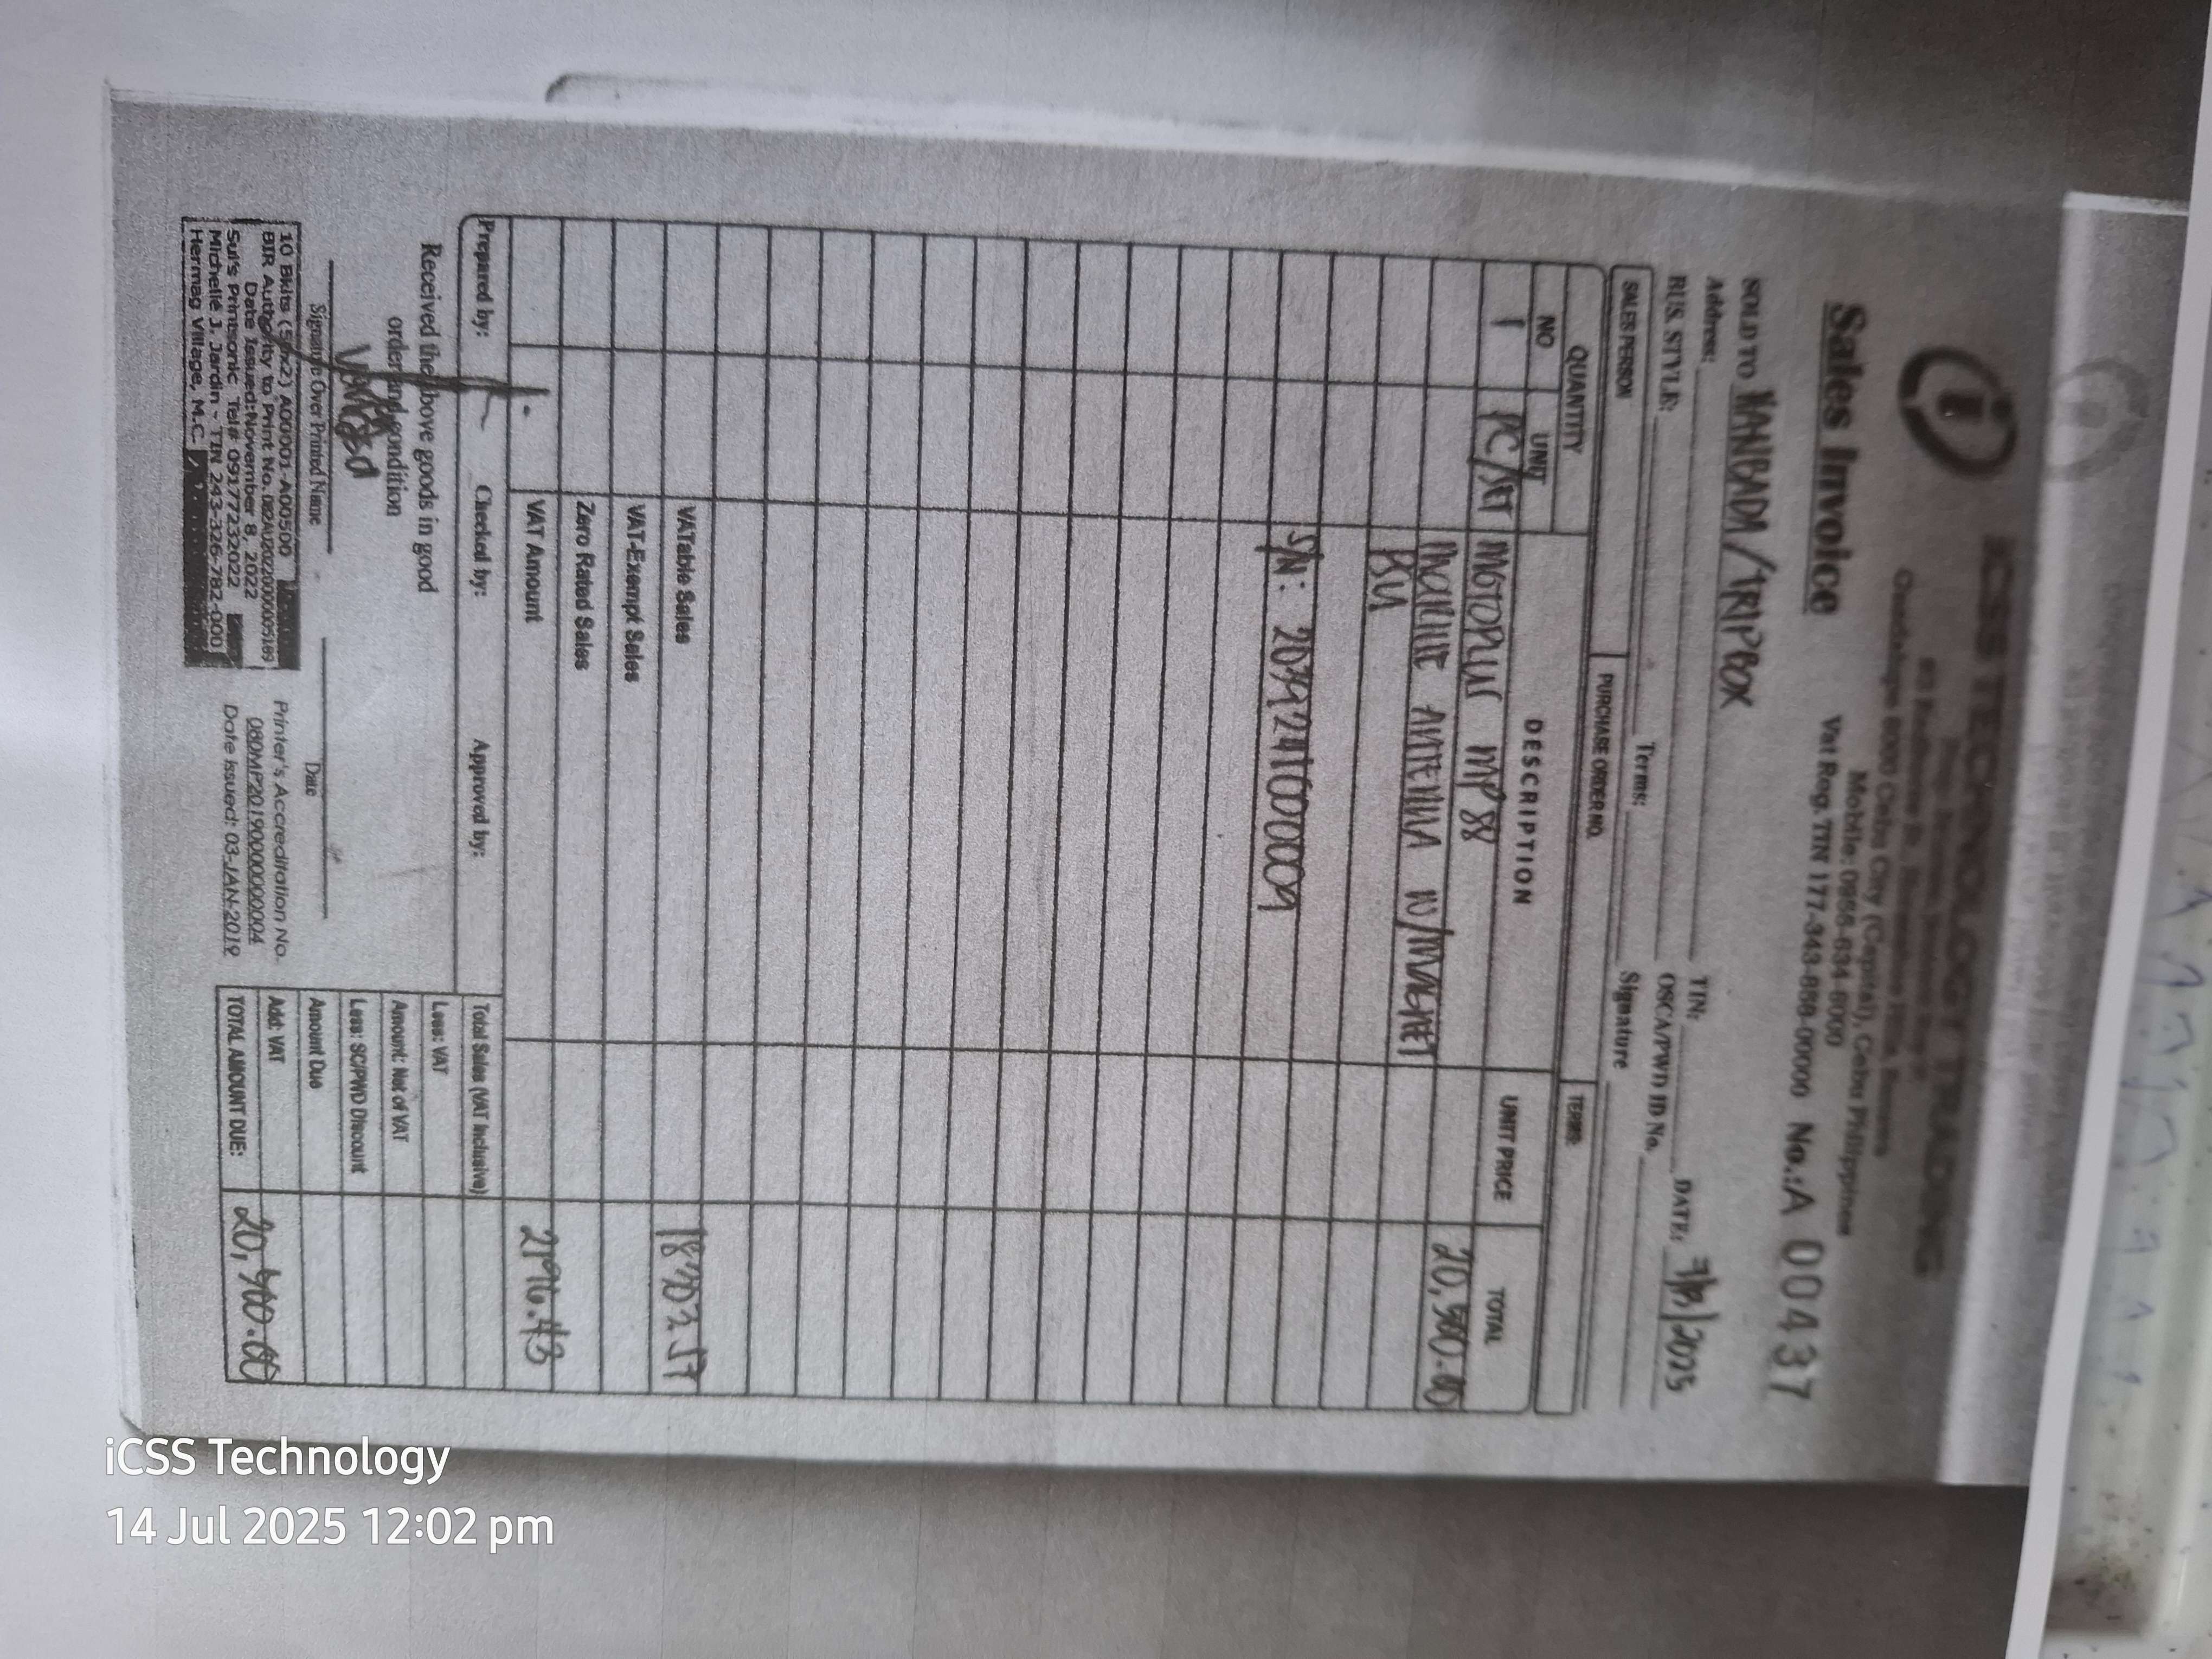 iCSS TECHNOLOGY TRADING
Guadalupe 6000 Cebu City (Capital), Cebu Philippines
Mobile: 0988-634-6000
Sales Invoice
Vat Reg. TIN 177-343-858-00000 No.:A 00437
SOLD TO WANBADA/TRIPBOX
DATE: 2025
Address:
TIN:
BUS. STYLE:
Terms:
OSCA/PWD ID No.
Signature
SALES PERSON
PURCHASE ORDER NO.
TERMS:
QUANTITY
NO
UNIT
DESCRIPTION
UNIT PRICE
TOTAL
1 PC/SET INGTOPLUS MP88
20,500.00
MACHINE ANTENNA W/MAGNET
S/N:
VATable Sales 18303.57
VAT-Exempt Sales
Zero Rated Sales
VAT Amount 2196.43
Prepared by:
Checked by:
Approved by:
Total Sales (VAT Inclusive)
Less: VAT
Amount: Net of VAT
Less: SC/PWD Discount
Amount Due
Add: VAT
TOTAL AMOUNT DUE: 20,500.00
Received the above goods in good
order and condition
Signature Over Printed Name
Date
10 Bklts (50x2) A00001-A00500
BIR Authority to Print No.
Date Issued:November 8, 2022
Sul's Printsonic Tel# 09177232022
Michelle J. Jardin - TIN 243-326-782-000
Hermag Village, M.C.
Printer's Accreditation No.
080MP20190000000004
Date Issued: 03-JAN-2019
iCSS Technology
14 Jul 2025 12:02 pm